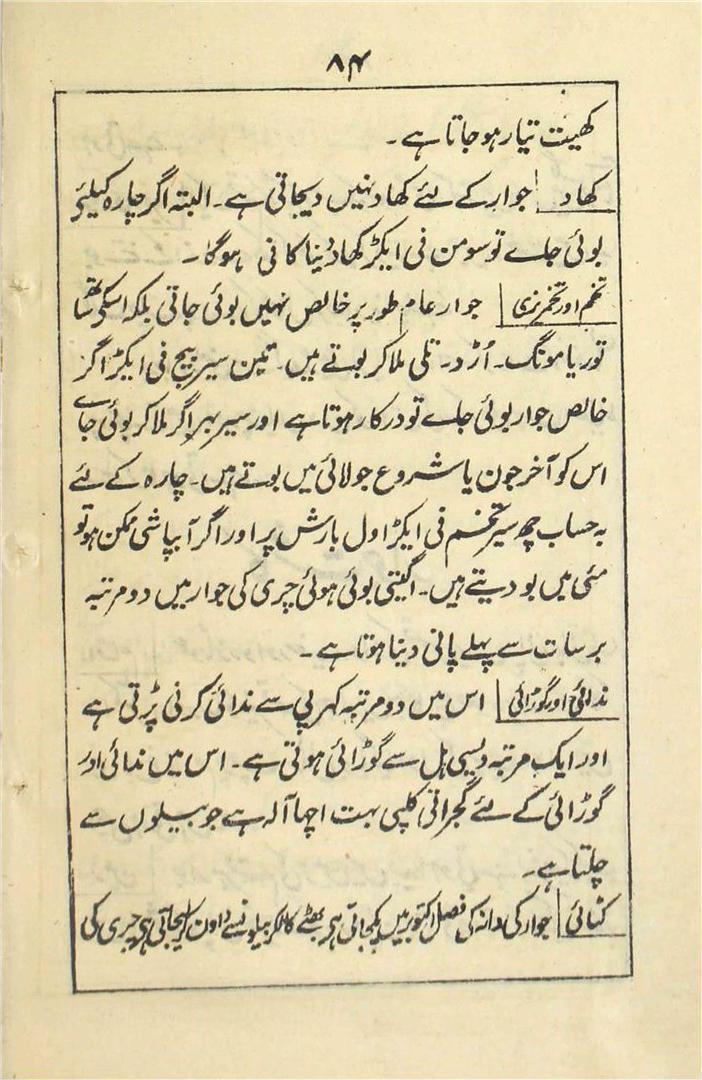 ۸۴
کھیت تیار ہو جاتا ہے۔
کھاد | جوار کے لئے کھاد نہیں دیجاتی ہے۔ البتہ اگر چارہ کیلئے
بوئی جاے تو سو من فی ایکڑ کھاد دینا کافی ہوگا۔
تخم اور تخمریزی | جوار عام طور پر خالص نہیں بوئی جاتی بلکہ اسکے ساتھ
تور یا مونگ۔ اُڑد۔ تلی ملا کر بوتے ہیں۔ تین سیر بیج فی ایکڑ اگر
خالص جوار بوئی جاے تو درکار ہوتا ہے اور سیر بہر اگر ملا کر بوئی جاے
اس کو آخر جون یا شروع جولائی میں بوتے ہیں۔ چارہ کے لئے
بہ حساب چھ سیر تخم فی ایکڑ اول بارش پر اور اگر آبپاشی ممکن ہو تو
مئی میں بو دیتے ہیں۔ اگیتی بوئی ہوئی چری کی جوار میں دو مرتبہ
برسات سے پہلے پانی دینا ہوتا ہے۔
ندائی اور گوڑائی | اس میں دو مرتبہ کہرپی سے ندائی کرنی پڑتی ہے
اور ایک مرتبہ دیسی ہل سے گوڑائی ہوتی ہے۔ اس میں ندائی اور
گوڑائی کے لئے گجراتی کلپی بہت اچھا آلہ ہے جو بیلوں سے
چلتا ہے۔
کٹائی | جوار کی دانہ کی فصل اکتوبر میں کیجاتی ہے بھٹے کاٹکر بیلونسے داون کر لیجاتی ہے چری کی